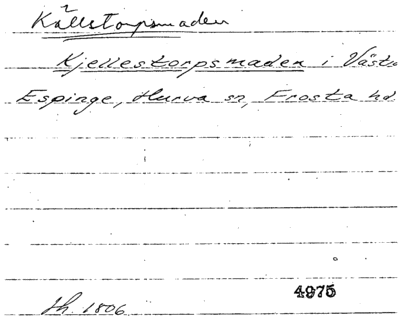 Källstorpsmaden
Kjellestorpsmaden i Västra
Espinge, Hurva sn, Frosta hd
4975
Lh. 1806